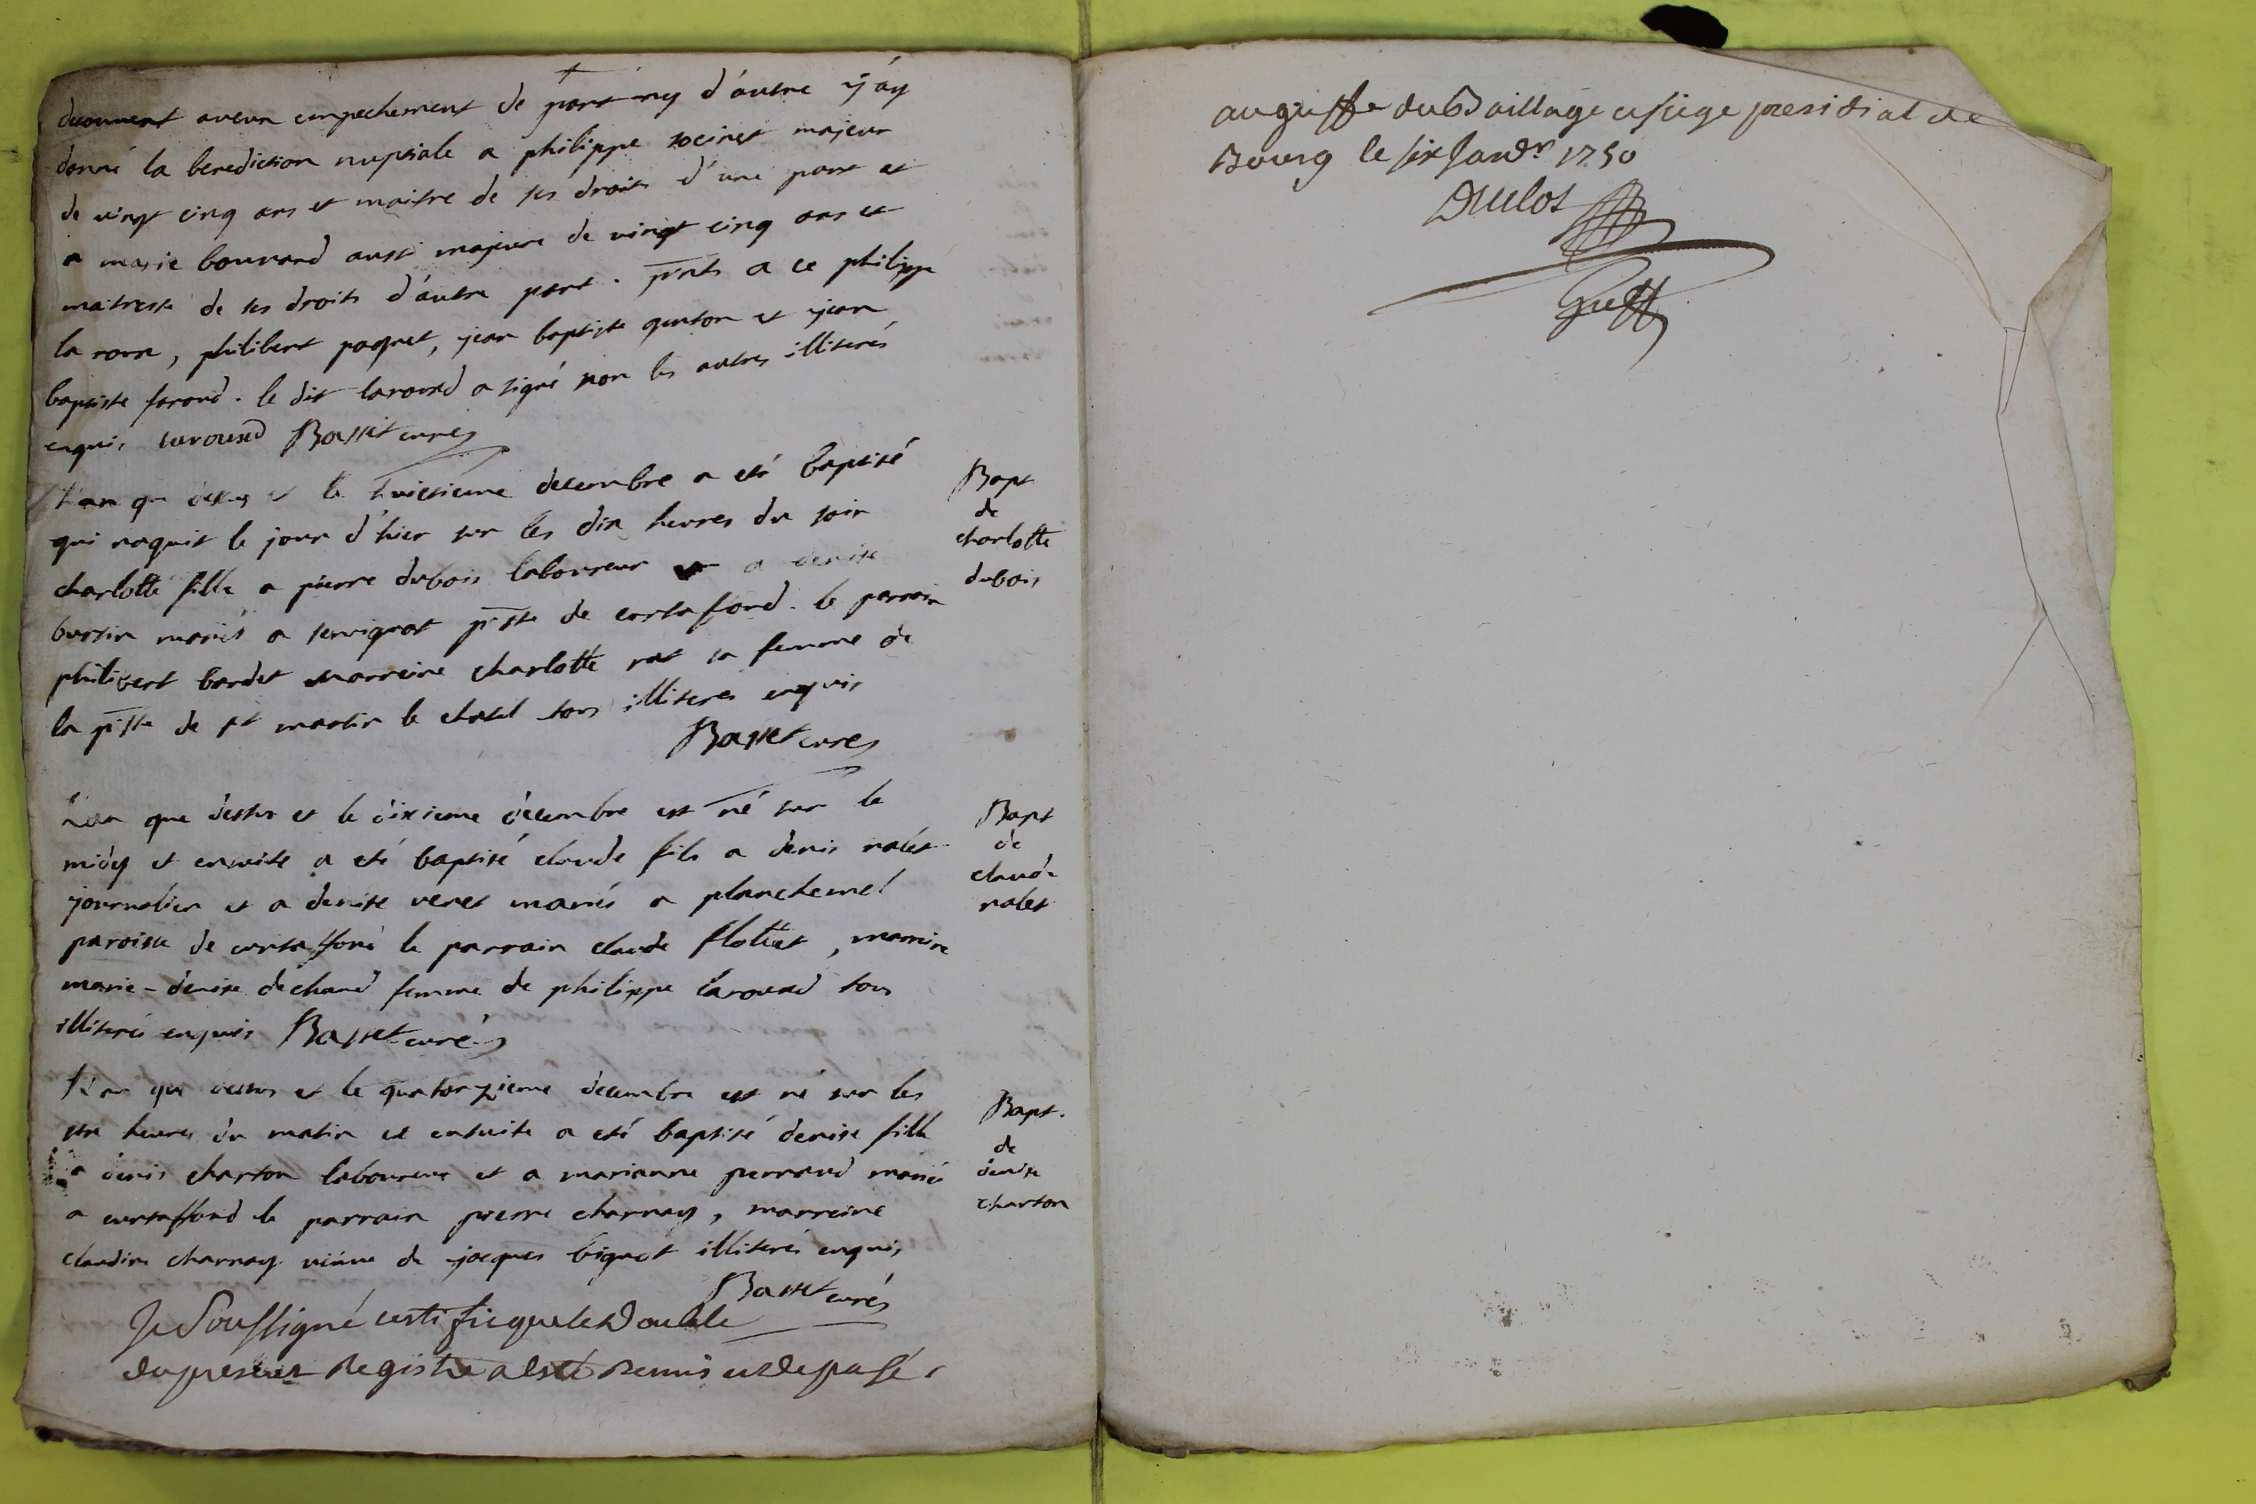 decouvert aucun empechement de part ny d'autre j'ay
donné la benediction nuptiale a philippe majeur
de vingt cinq ans et maitre de ses droits d'une part et
a marie bouvard aussi majeure de vingt cinq ans et
maitresse de ses droits d'autre part. pnts a ce philippe
la philibert paquet, jean baptiste et jean
baptiste . le dit laround a signé non les autres illiterés
enquis laround Basset curé
L'an que dessus et le huictieme decembre a eté baptisé
qui naquit le jour d'hier sur les dix heures du soir
charlotte fille a pierre dubois laboureur a denise
mariés a servignat psse de curtafond. le parrain
philibert bardet marreine charlotte rat sa femme de
la psse de st martin le chatel tous illiteres enquis
Basset curé
Bapt
de
charlotte
dubois
L'an que dessus et le dixieme decembre est né sur le
midy et ensuite a eté baptisé claude fils a denis nalet
journalier et a denise veret mariés a planchemel
paroisse de curtaffond le parrain claude flottet, marreine
marie-denise dechand femme de philippe laround tous
illiterés enquis Basset curé
Bapt
de
claude
nalet
L'an que dessus et le quatorzieme decembre est né sur les
heures du matin et ensuite a eté baptisé denise fille
a denis charton laboureur et a marianne perraud mariés
a curtaffond le parrain pierre charnay, marreine
claudine charnay veuve de jacques bignot illiterés enquis
Basset curé
Bapt.
de
denise
charton
Je Soussigné certiffie que le Double
du present Registre a esté Remis et deposé
au greffe du Baillage et siege presidial de
Bourg le six Janvr 1750
Duclos
Greff